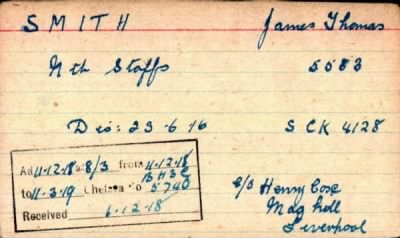 SMITH James Thomas
Nth Staffs 5583
Dis: 23-6-16 S CK 4128
Ad 11-12-18 a 8/3 from 11-12-18
B H 3 C
to 11-3-19 Chelsea to 5740
Received 6-12-18
c/o Henry Cose
Mag hell
Liverpool